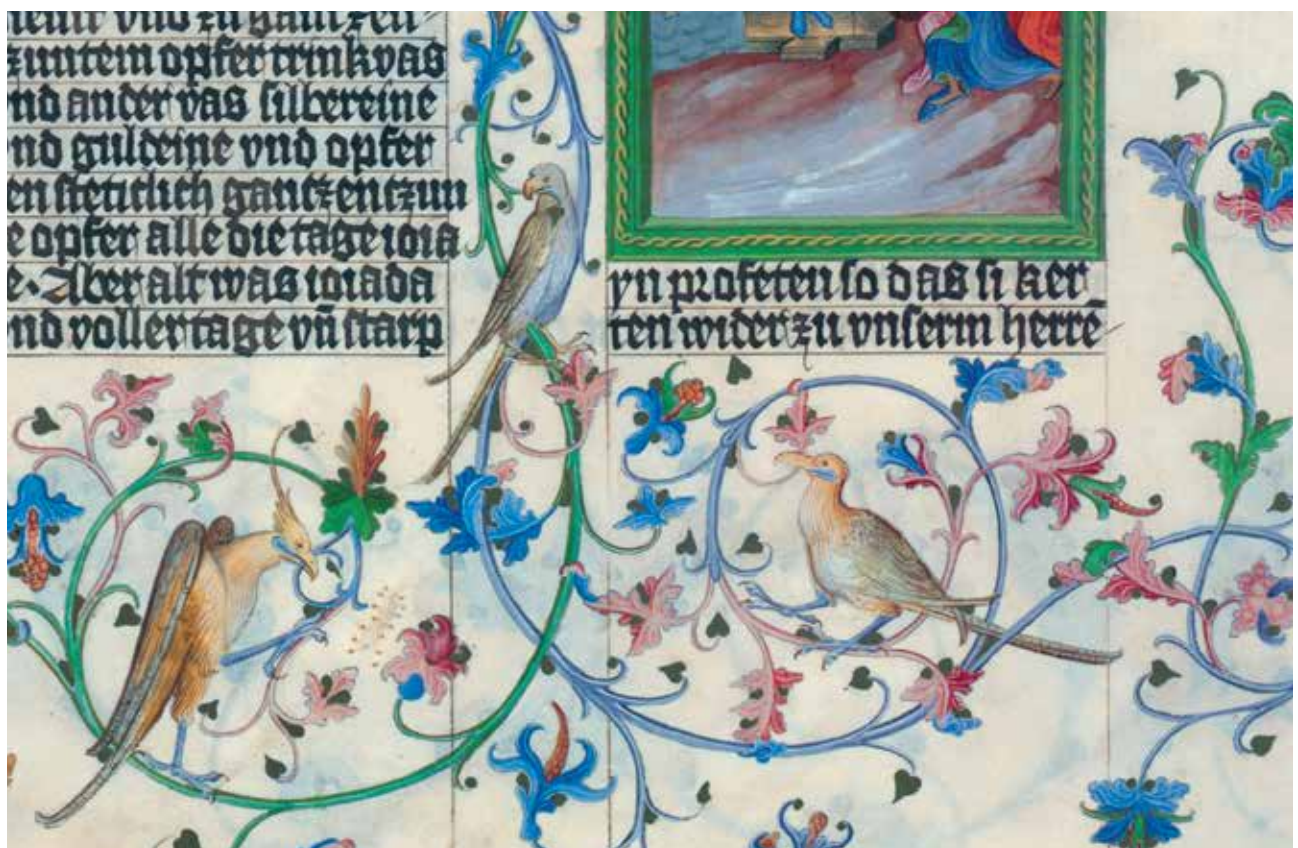 vnd zu gantzen
zuntem opfer trinkvas
nd ander vas silbereine
nd guldeine vnd opfer
en steticlich gantzentzun
e opfer alle die tage ioia
e· Aber alt was ioiada
nd vollertage vn̄ starp
yn profeten so das si ker
ten wider zu vnserm herrē